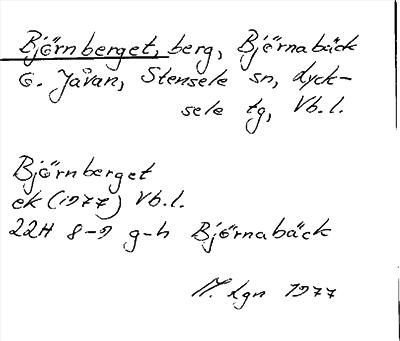 Björnberget, berg, Björnabäck
o. Jåvan, Stensele sn, Lyck-
sele tg, Vb.l.
Björnberget
ek (1977) Vb.l.
22H 8-9 g-h Björnabäck
Lgn 1977